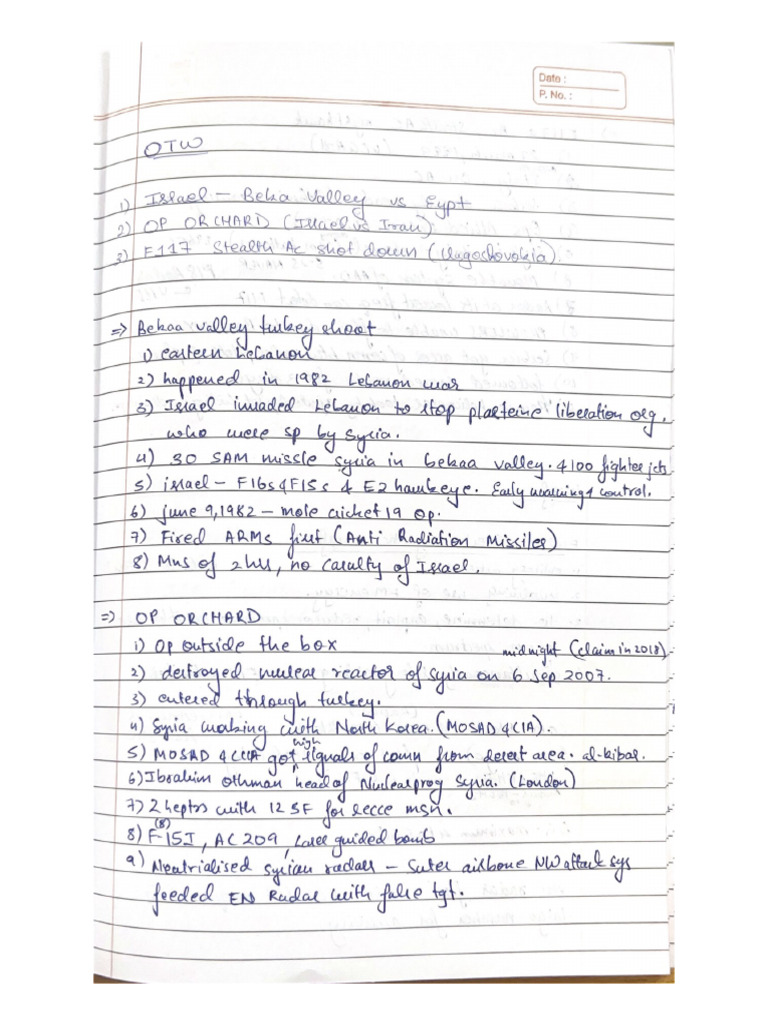 Date :
P. No. :
OTW
1) Israel – Beka Valley vs Eypt
2) OP ORCHARD (Israel vs Iran)
3) F117 Stealth Ac shot down (Yugoshovokia)
=> Bekaa valley turkey shoot
1) eastern Lebanon
2) happened in 1982 Lebanon war
3) Israel invaded Lebanon to stop plasteine liberation org.
who were sp by Syria.
4) 30 SAM missle syria in bekaa valley. & 100 fighter jets
5) israel – F16s & F15s & E2 hawkeye. Early warning & control.
6) june 9, 1982 – mole cricket 19 op.
7) Fired ARMs first (Anti Radiation Missiles)
8) Mns of 2 hrs, no casulty of Israel.
=> OP ORCHARD
1) OP outside the box
midnight (claim in 2018)
2) destroyed nuclear reactor of syria on 6 Sep 2007.
3) entered through turkey.
4) Syria working with North Korea. (MOSAD & CIA).
5) MOSAD & CIA got high signals of comn from desert area. al-kibar.
6) Ibrahim Othman head of Nuclear prog Syria. (London)
7) 2 heptrs with 12 SF for recce msn.
8) F-15I (8), AC 209, Laser guided bomb
9) Neutrialised syrian radars – Suter airbone NW attack sys
feeded EN Radar with false tgt.